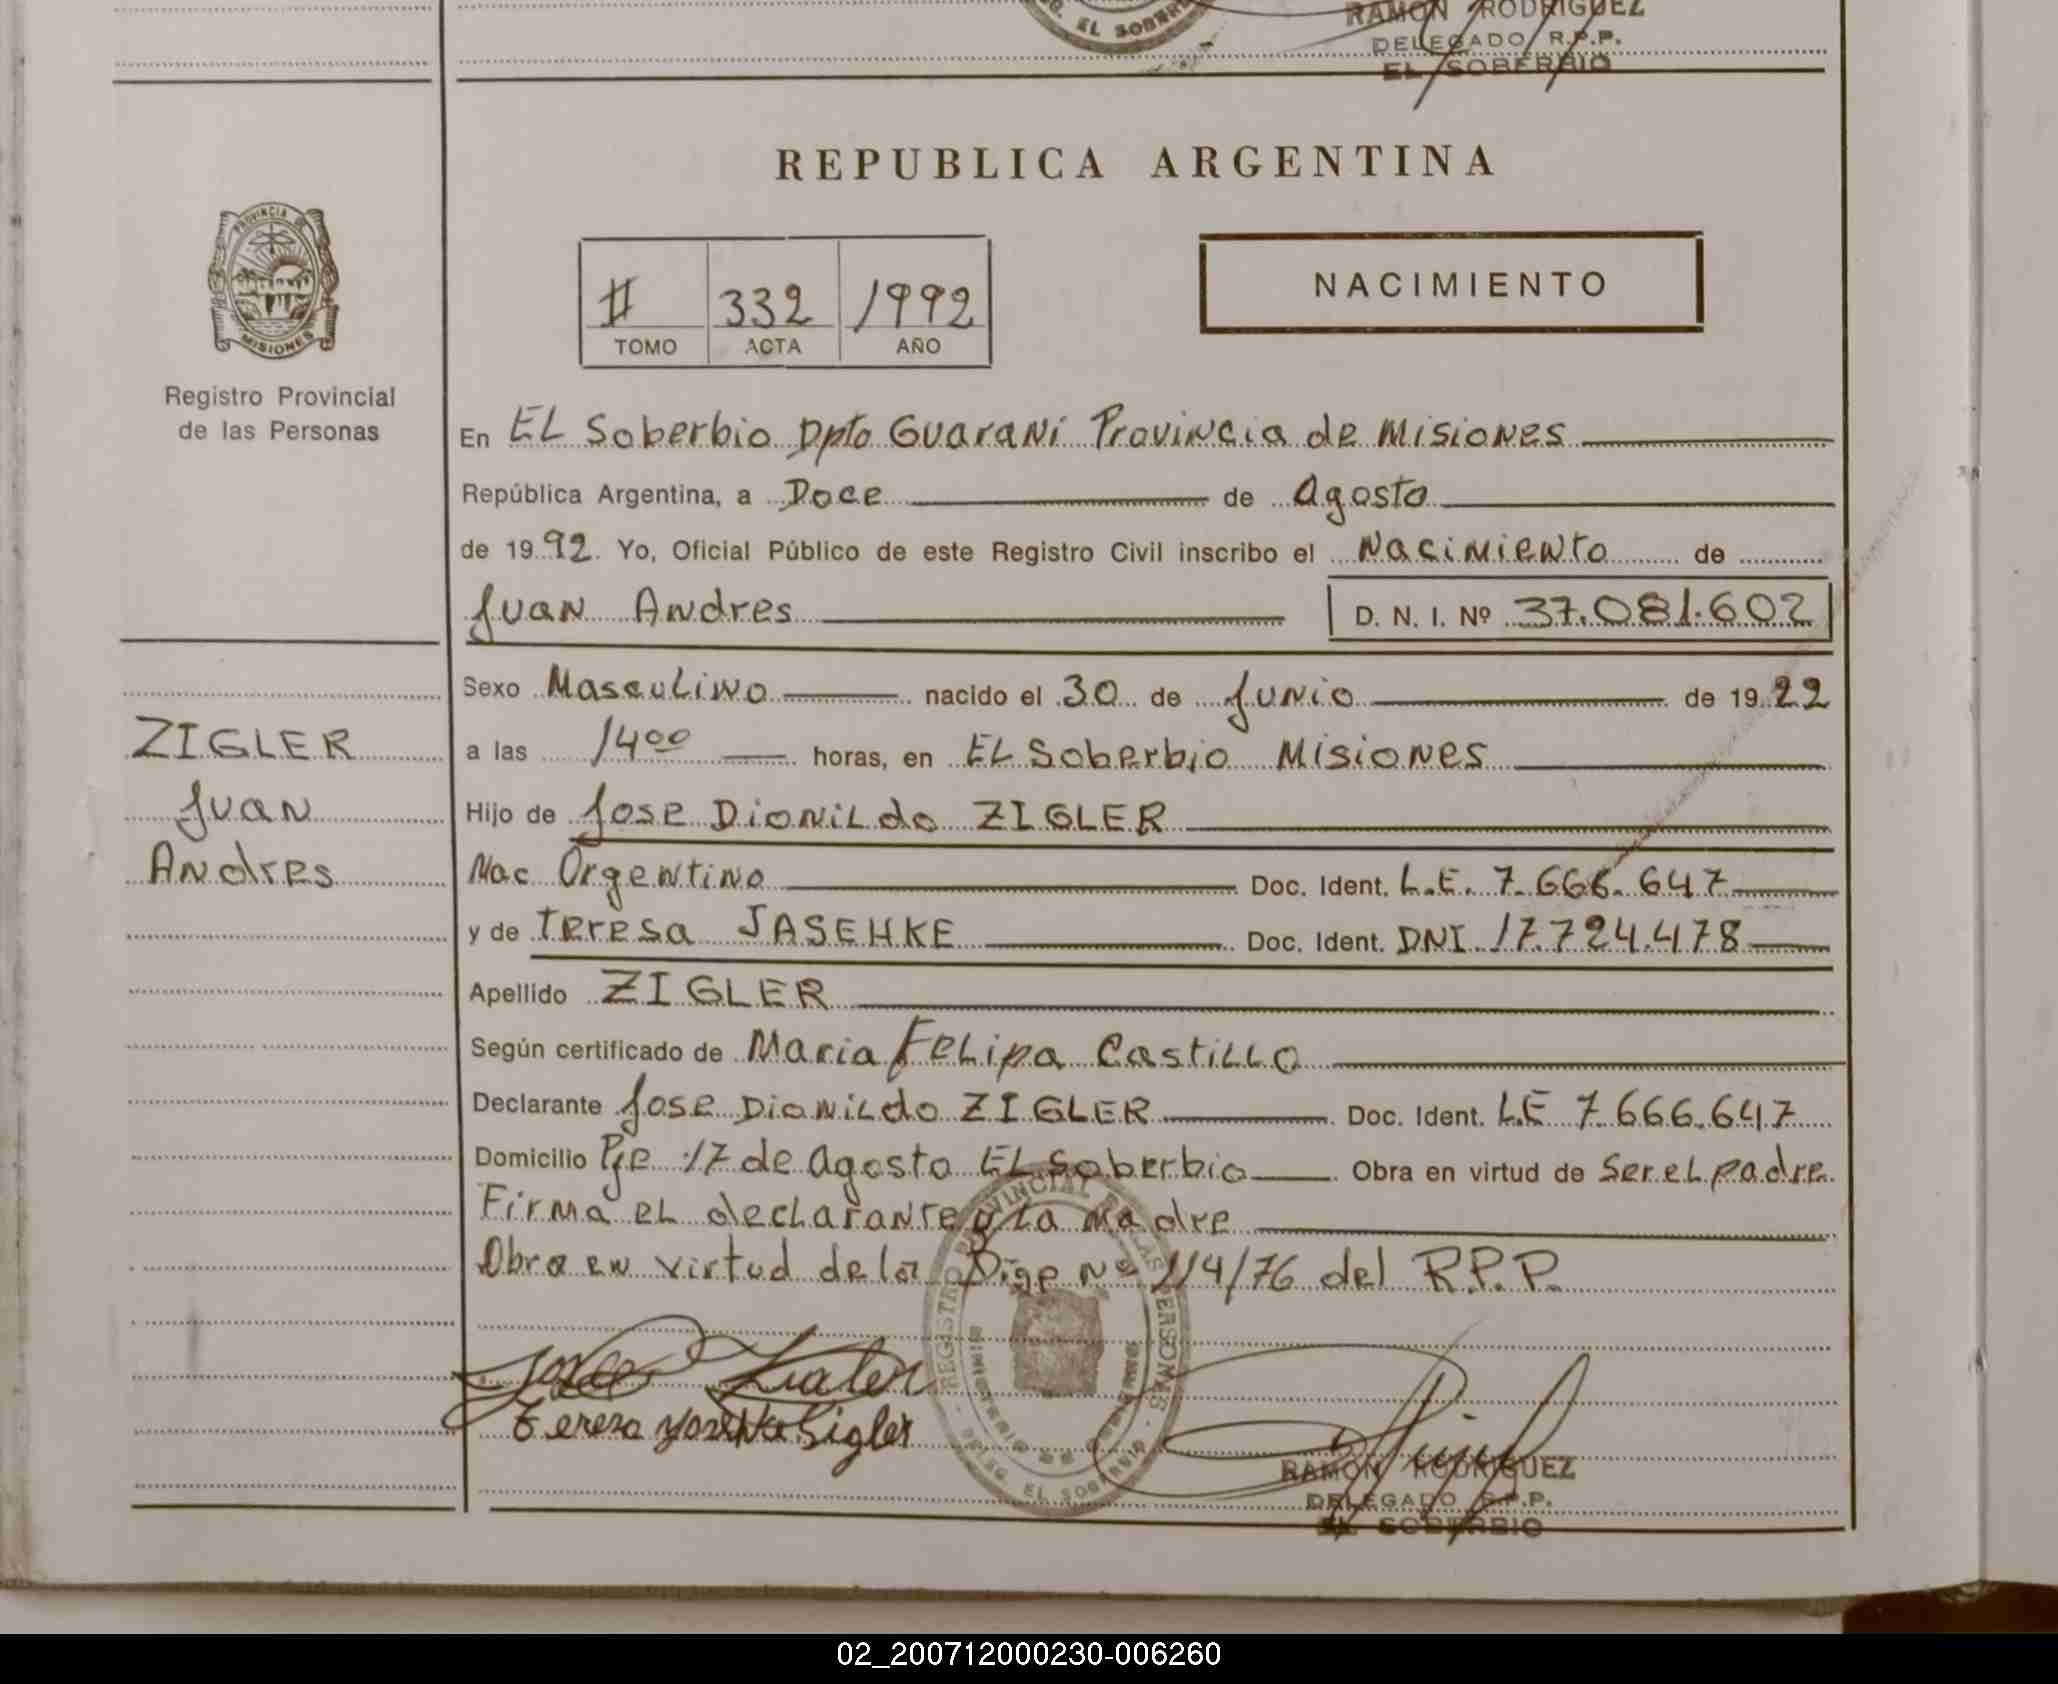 EL SOBERBIO
RAMON RODRIGUEZ
DELEGADO R.P.P.
EL SOBERBIO
REPUBLICA ARGENTINA
PROVINCIA DE
MISIONES
Registro Provincial
de las Personas
II 332 1992
TOMO ACTA AÑO
NACIMIENTO
En EL Soberbio Dpto Guaraní Provincia de Misiones
República Argentina, a Doce de Agosto
de 1992. Yo, Oficial Público de este Registro Civil inscribo el Nacimiento de
Juan Andres D. N. I. Nº 37.081.602
Sexo Masculino nacido el 30 de Junio de 1922
ZIGLER
Juan
Andres
a las 14 00 horas, en EL Soberbio Misiones
Hijo de Jose Dionildo ZIGLER
Nac Argentino Doc. Ident. L.E. 7.666.647
y de Teresa JASEHKE Doc. Ident. DNI 17.724.478
Apellido ZIGLER
Según certificado de Maria Felipa Castillo
Declarante Jose Dionildo ZIGLER Doc. Ident. L.E 7.666.647
Domicilio Pje 17 de Agosto EL Soberbio Obra en virtud de Ser el padre
Firma el declarante y la madre
Obra en virtud de la Disp Nº 114/76 del R.P.P.
REGISTRO PROVINCIAL DE LAS PERSONAS
MINISTERIO DE
DELEG. EL SOBERBIO
Jose Zigler
Teresa Sigler
RAMON RODRIGUEZ
DELEGADO R.P.P.
EL SOBERBIO
02_200712000230-006260